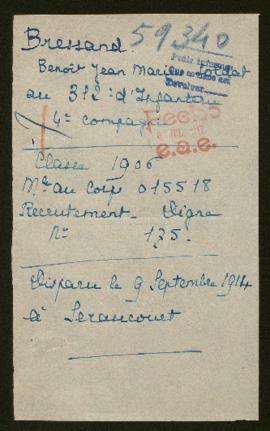 Bressand 59340
Benoît Jean Marie Soldat
au 312 : d'Infanterie
4e compagnie
Fecho
e.a.e.
Classe 1906
Mle au Corps 015518
Recrutement - Digne
No 175.
Disparu le 9 Septembre 1914
à Serancourt